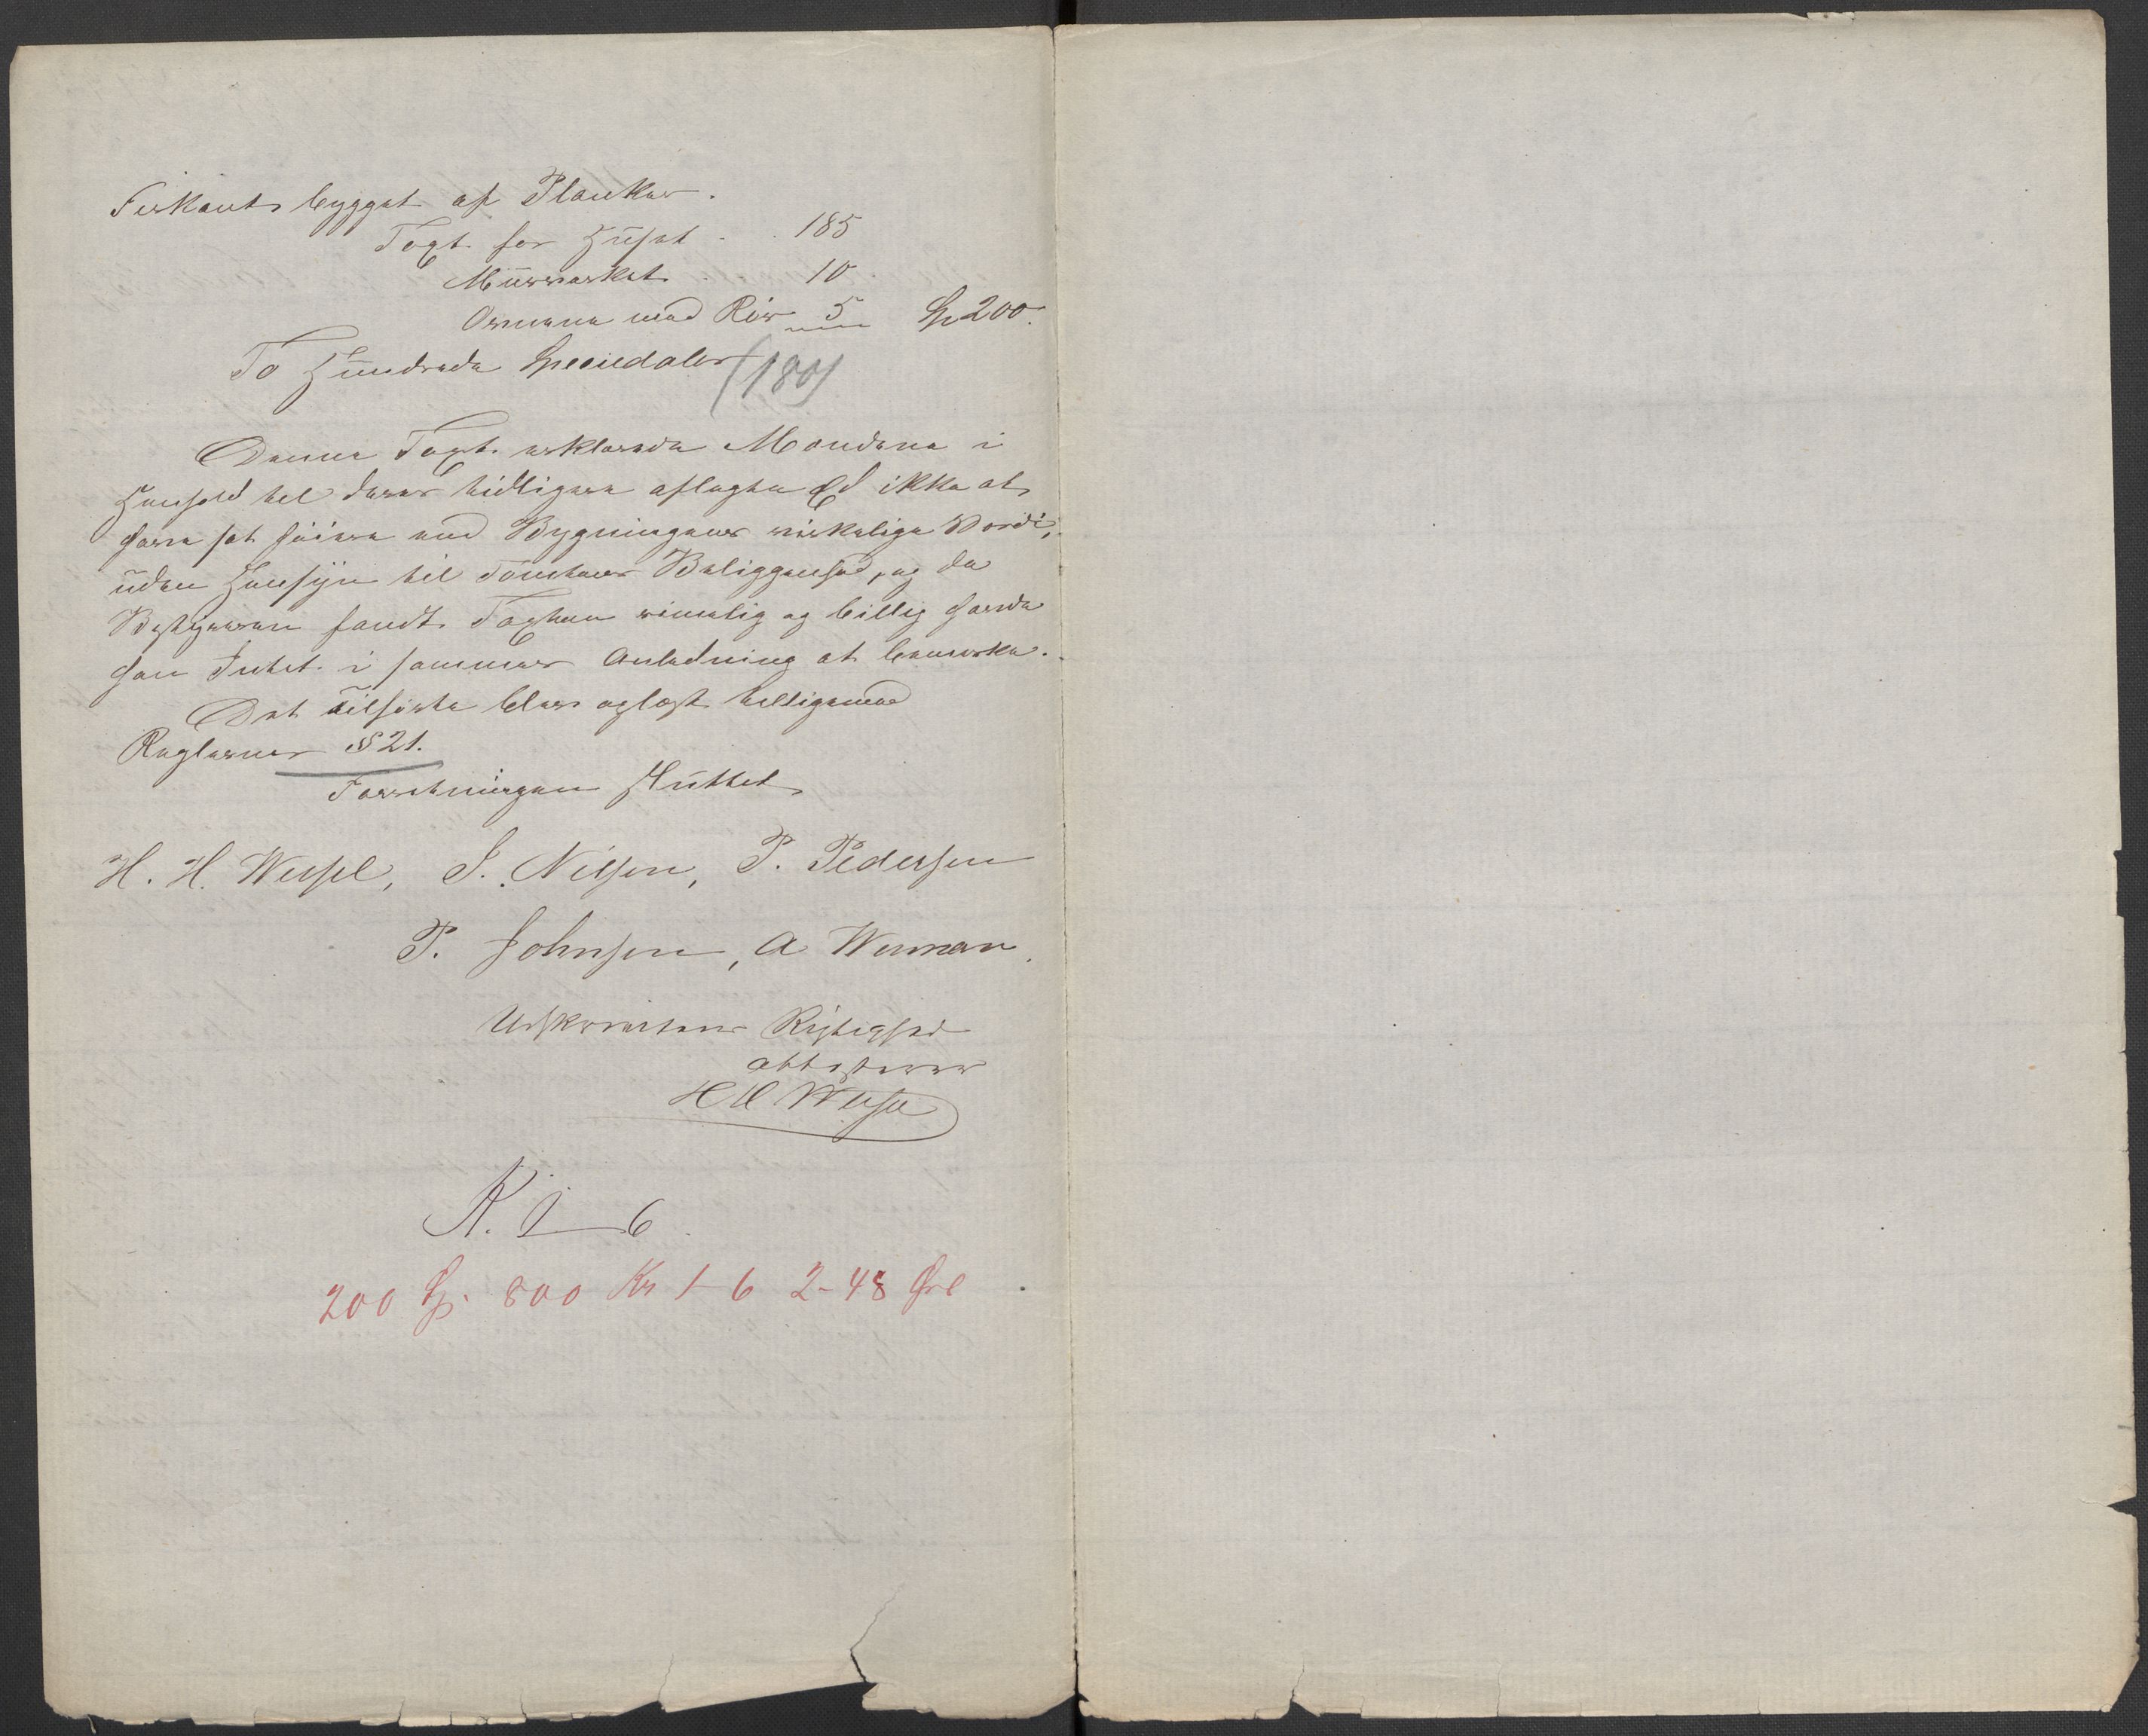 Firkant bygget af Planker.
Taxt. for Huset . . 185
Muurværket . 10
Ovnene med Rør 5 Sp 200.
To Hundrede Speciedaler (180)
Denne Taxt. erklærede Mændene i
Henhold til deres tidligere aflagte Ed ikke at
være sat høiere end Bygningens virkelige Værdi,
uden Hensyn til Tomtens Beliggenhed, og da
Bestyreren fandt Taxten rimelig og billig havde
han Intet i sammes Anledning at bemærke.
Det Tilførte blev oplæst tilligemed
Reglernes § 21.
Forretningen sluttet
H. H. Wessel, J. Nilsen, P. Pedersen
P. Johnsen, A Werman.
Udskriftens Rigtighed
attesterer
H H Wessel
A. 1 – 6
200 Sp. 800 Kr 1-6 2-48 Øre